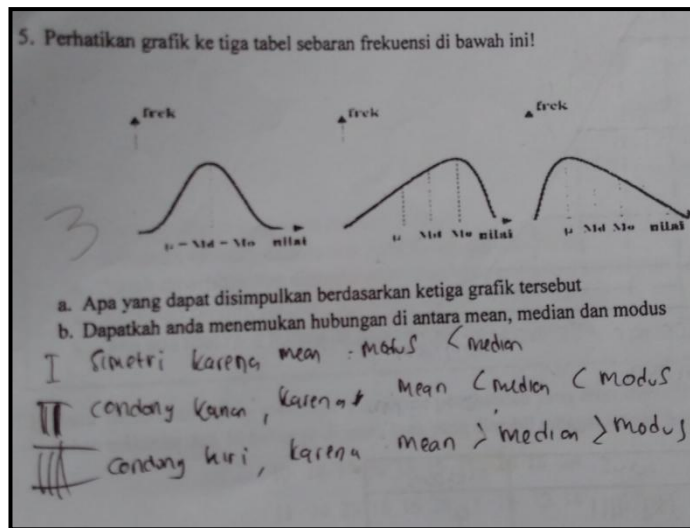 5. Perhatikan grafik ke tiga tabel sebaran frekuensi di bawah ini!
frek frek frek
μ - Md - Mo nilai μ Md Mo nilai μ Md Mo nilai
3
a. Apa yang dapat disimpulkan berdasarkan ketiga grafik tersebut
b. Dapatkah anda menemukan hubungan di antara mean, median dan modus
I Simetri karena mean = modus < median
II condong kanan, karena mean < median < modus
III condong kiri, karena mean > median > modus